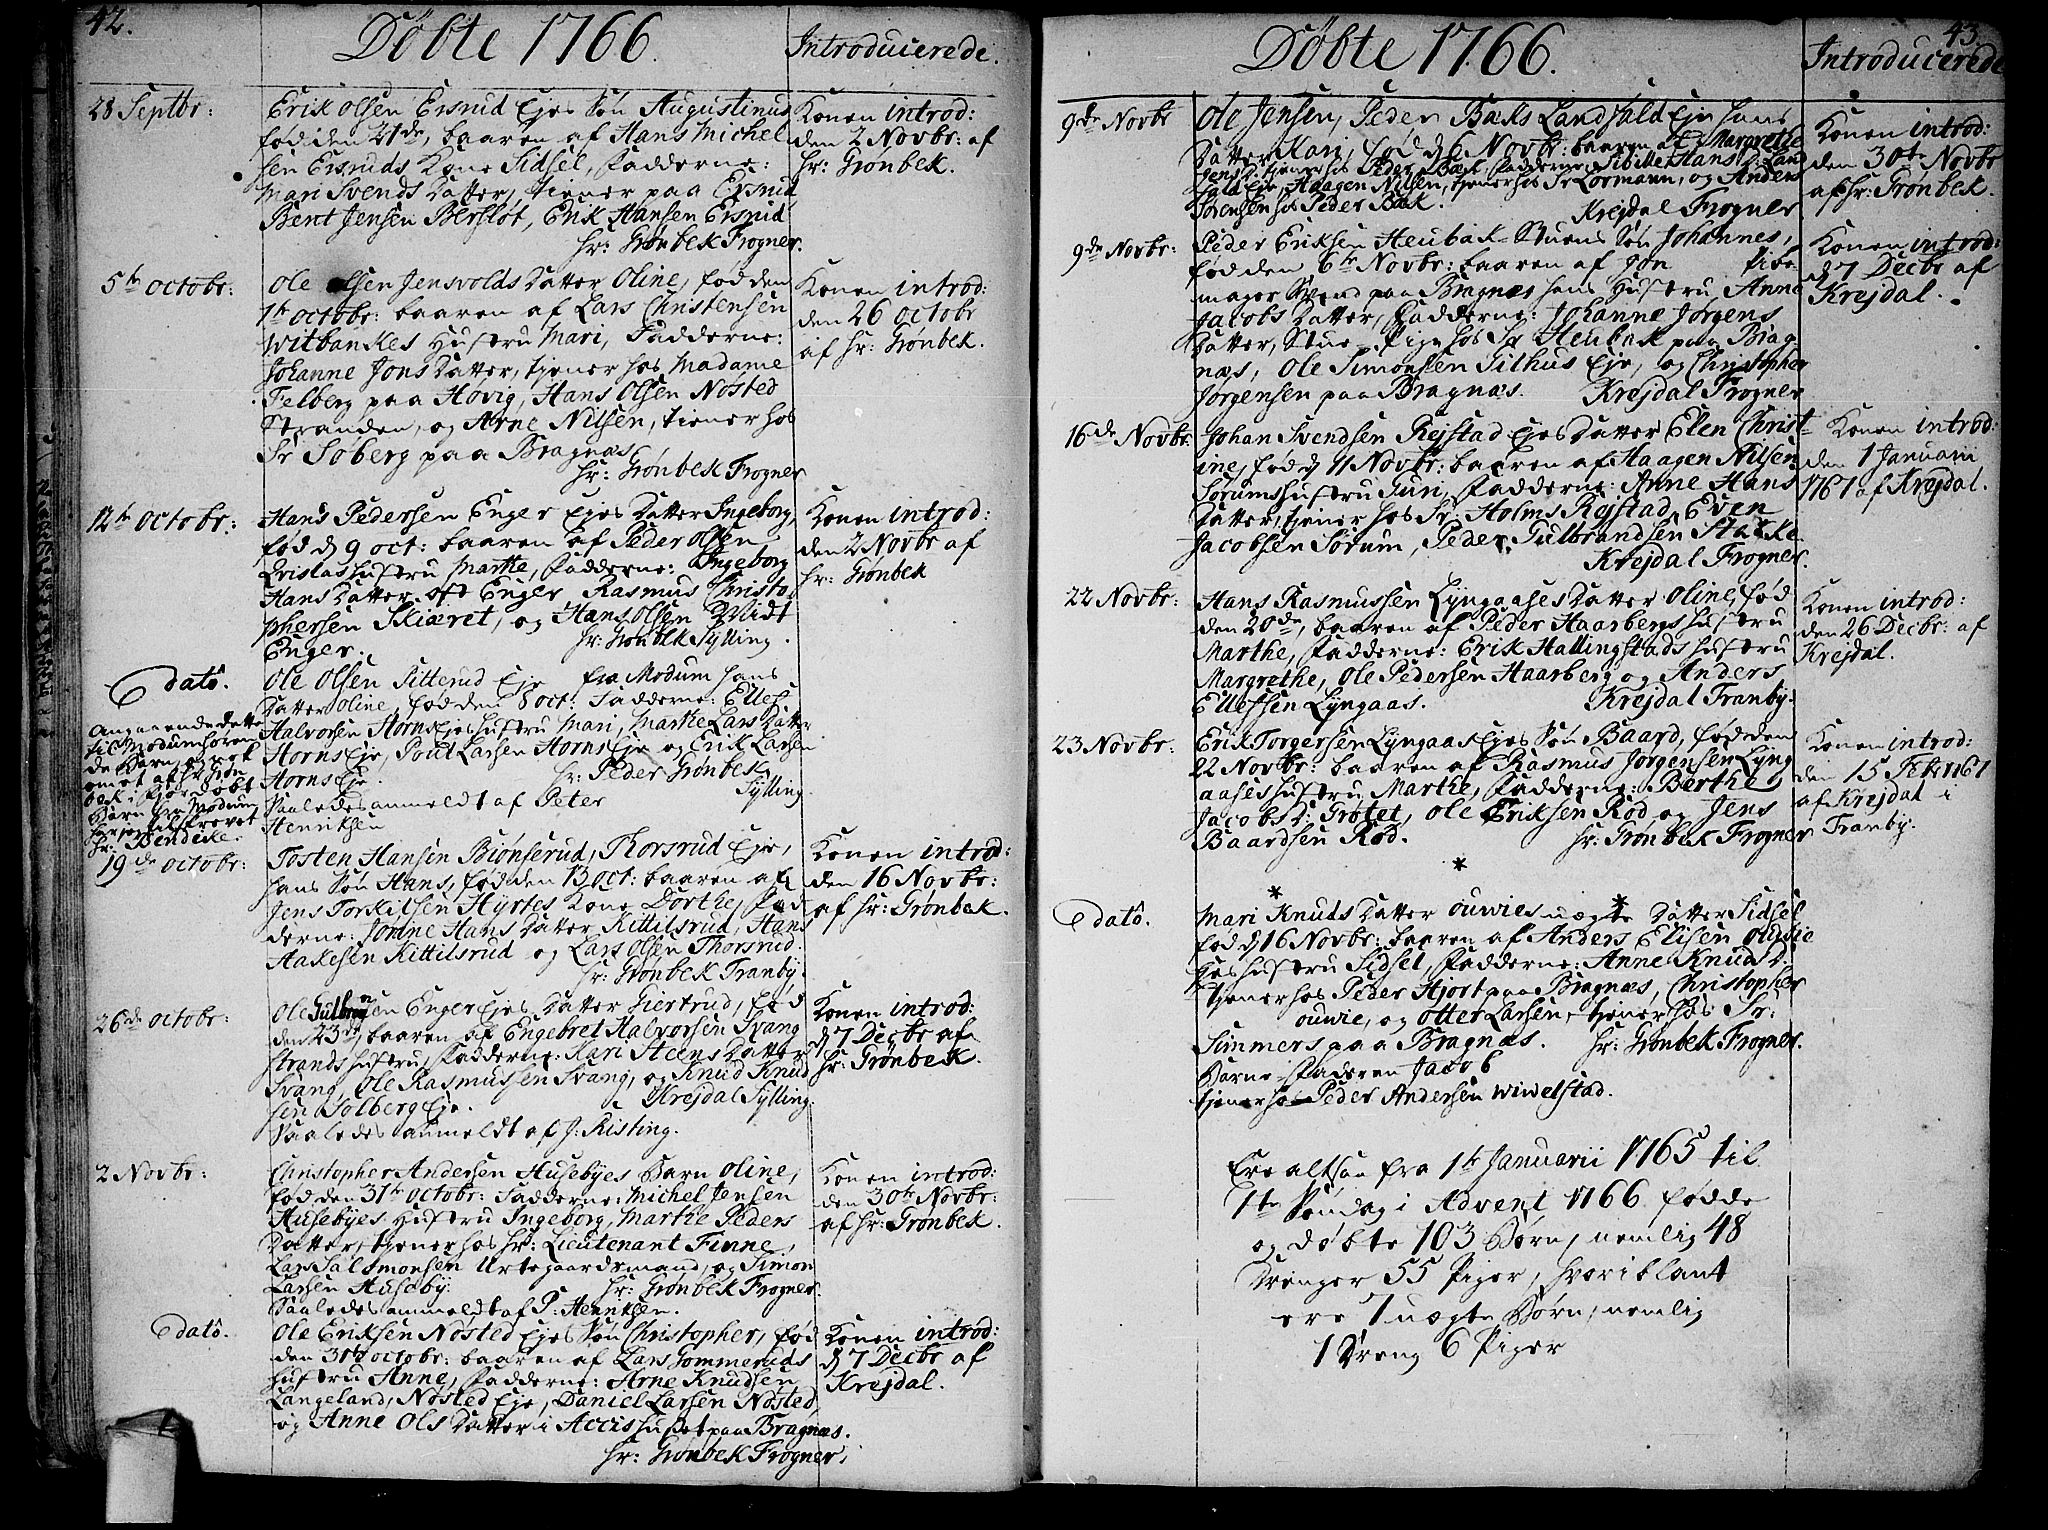 42.
Döbte 1766.
Introducerede.
28 Septbr:
Erik Olsen Ersrud Ejes Søn Augustinus
föd den 21de, baaren af Hans Michel
sen Ersruds Kone Sidsel, Fadderne:
Mari Svends Datter, tiener paa Ersrud
Bent Jensen Berslöt, Erik Hansen Ersrud
hr: Grønbek Frogner.
Konen introd:
den 2 Novbr: af
hr: Grönbek.
5te Octobr:
Ole Olsen Jensvolds Datter Oline, föd den
1te Octobr: baaren af Lars Christensen
Witbankes Hustru Mari, Fadderne:
Johanne Jons Datter, tjener hos Madame
Felberg paa Hovig, Hans Olsen Nösted
Stranden, og Arne Nilsen, tiener hos
Sr Söberg paa Bragnæs
hr: Grönbek Frogner
Konen introd:
den 26 Octobr
af hr: Grönbek.
12te Octobr:
Hans Pedersen Enger Ejes Datter Ingeborg,
föd d 9 oct: baaren af Peder Olsen
Qvislas hustru Marthe, Fadderne: Ingeborg
Hans Datter Enger Rasmus Christo
phersen Skiæret, og Hans Olsen
Enger.
hr: Grönbek Sylling.
Konen introd:
den 2 Novbr af
hr: Grönbek
Dato.
Ole Olsen Sitterud Eje fra Modum hans
Datter Oline, föd den 8 oct: Fadderne: Ellef
Halvorsen Horns Ejes hustru Mari, Marthe Lars Datter
Horns Eje, Poul Larsen Horns Eje og Erik Larsen
Horns Eje. hr: Peder Grönbek
Sylling.
Saaledes anmeldt af Peter
Henriksen
Angaaende dette
til Modum hören
de Barn,
af hr: Grön
bek i Fjor döbt
Barn fra Modum
har jeg tilskrevet
hr: Bendeke.
19de Octobr:
Tosten Hansen Biönserud, Thorsrud Eje,
hans Søn Hans, föd den 13 oct: baaren af
Jens Torkilsen Hyrtes Kone Dorthe, Fad
derne: Hans Datter Kittilsrud, Hans
Aakesen Kittilsrud og Lars Olsen Thorsrud.
hr: Grönbek Franby.
Konen introd:
den 16 Novbr:
af hr: Grönbek.
26de Octobr:
Ole Gulbransen Enger Ejes Datter Giertrud, föd
den 23de, baaren af Engebret Halvorsen Svang
strands hustru, Fadderne: Kari Steens Datter
Svang, Ole Rasmussen Svang, og Knud Knud
sen Solberg Eje. Krejdal Sylling.
Saaledes anmeldt af J: Risting.
Konen introd:
d 7 Decbr af
hr: Grönbek.
2 Novbr:
Christopher Andersen Husebyes Barn Oline,
föd den 31te Octobr: Fadderne: Michel Jensen
Husebyes Hustru Ingeborg, Marthe Peders
Datter, tjener hos hr: Lieutenant Finne,
Lars Salomonsen Urtegaardsmand, og Simon
Larsen Huseby. hr: Grönbek Frogner.
Saaledes anmeldt af P: Henriksen.
Konen introd:
den 30te Novbr:
af hr: Grönbek.
Dato.
Ole Eriksen Nösted Ejes Søn Christopher, föd
den 31te Octobr: baaren af Lars Gommeruds
hustru Anne, Fadderne: Arne Knudsen
Langeland, Nösted Eje, Daniel Larsen Nösted
og Anne Ols Datter i Accishuset paa Bragnæs.
hr: Grönbek Frogner.
Konen introd:
d 7 Decbr af
Krejdal.
43.
Döbte 1766.
Introducerede
9de Novbr
Ole Jensen, Peder Bæks Landsald Eje hans
Datter Kari, föd d 6 Novbr: baaren af Margrethe
Jens D: tjener hos Peder Bæk, Fadderne: Sibille Hans D: Land
fald Eje, Haagen Nilsen, tjener hos Sr Loormann, og Anders
Sörensen hos Peder Bæk.
Krejdal Frogner
Konen introd:
den 30te Novbr
af hr: Grønbek.
9de Novbr:
Peder Eriksen Heubak-Stuens Søn Johannes,
föd den 6te Novbr: baaren af Jon Pibe
mager Svend paa Bragnæs hans Hustru Anne
Jacobs Datter, Fadderne: Johanne Jörgens
Datter, Stue-Pige hos Sr Heubak paa Brag
næs, Ole Simonsen Gilhus Eje, og Christopher
Jörgensen paa Bragnæs. Krejdal Frogner
Konen introd:
d 7 Decbr af
Krejdal.
16de Novbr.
Johan Svendsen Rejstad Ejes Datter Elen Christ
ine, föd d 11 Novbr: baaren af Haagen Nilsen
Sörums hustru Guri, Fadderne: Anne Hans
Datter, tjener hos Sr: Holms Rejstad, Even
Jacobsen Sörum, Peder Gulbrandsen Stakke.
Krejdal Frogner.
Konen introd:
den 1 Januarii
1767 af Krejdal.
22 Novbr:
Hans Rasmussen Lyngaases Datter Oline, föd
den 20de, baaren af Peder Haarbergs hustru
Marthe, Fadderne: Erik Hallingstads hustru
Margrethe, Ole Pedersen Haarberg og Anders
Ellefsen Lyngaas. Krejdal Franby.
Konen introd:
den 26 Decbr: af
Krejdal.
23 Novbr:
Erik Torgersen Lyngaas Ejes Søn Baard, föd den
22 Novbr: baaren af Rasmus Jörgensen Lyng
aases hustru Marthe, Fadderne: Berthe
Jacobs D: Grötet, Ole Eriksen Röd og Jens
Baardsen Röd. hr: Grönbek Frogner
Konen introd:
den 15 Febr 1767
af Krejdal i
Franby.
*
* *
Dato.
Mari Knuds Datter Ouwies uægte Datter Sidsel
föd d 16 Novbr: baaren af Anders Elisen
Ejes hustru Sidsel, Fadderne: Anne Knuds D:
tjener hos Peder Hjort paa Bragnæs, Christopher
Ouwie, og Otter Larsen, tjener hos Sr:
Simmers paa Bragnæs. hr: Grönbek Frogner.
Barne-Faderen Jacob
tjener hos Peder Andersen Wiwelstad.
Ere altsaa fra 1te Januarii 1765 til
1te Søndag i Advent 1766 födde
og döbte 103 Börn, nemlig 48
Drenger 55 Piger, hvoriblant
ere 7 uægte Börn, nemlig
1 Dreng 6 Piger